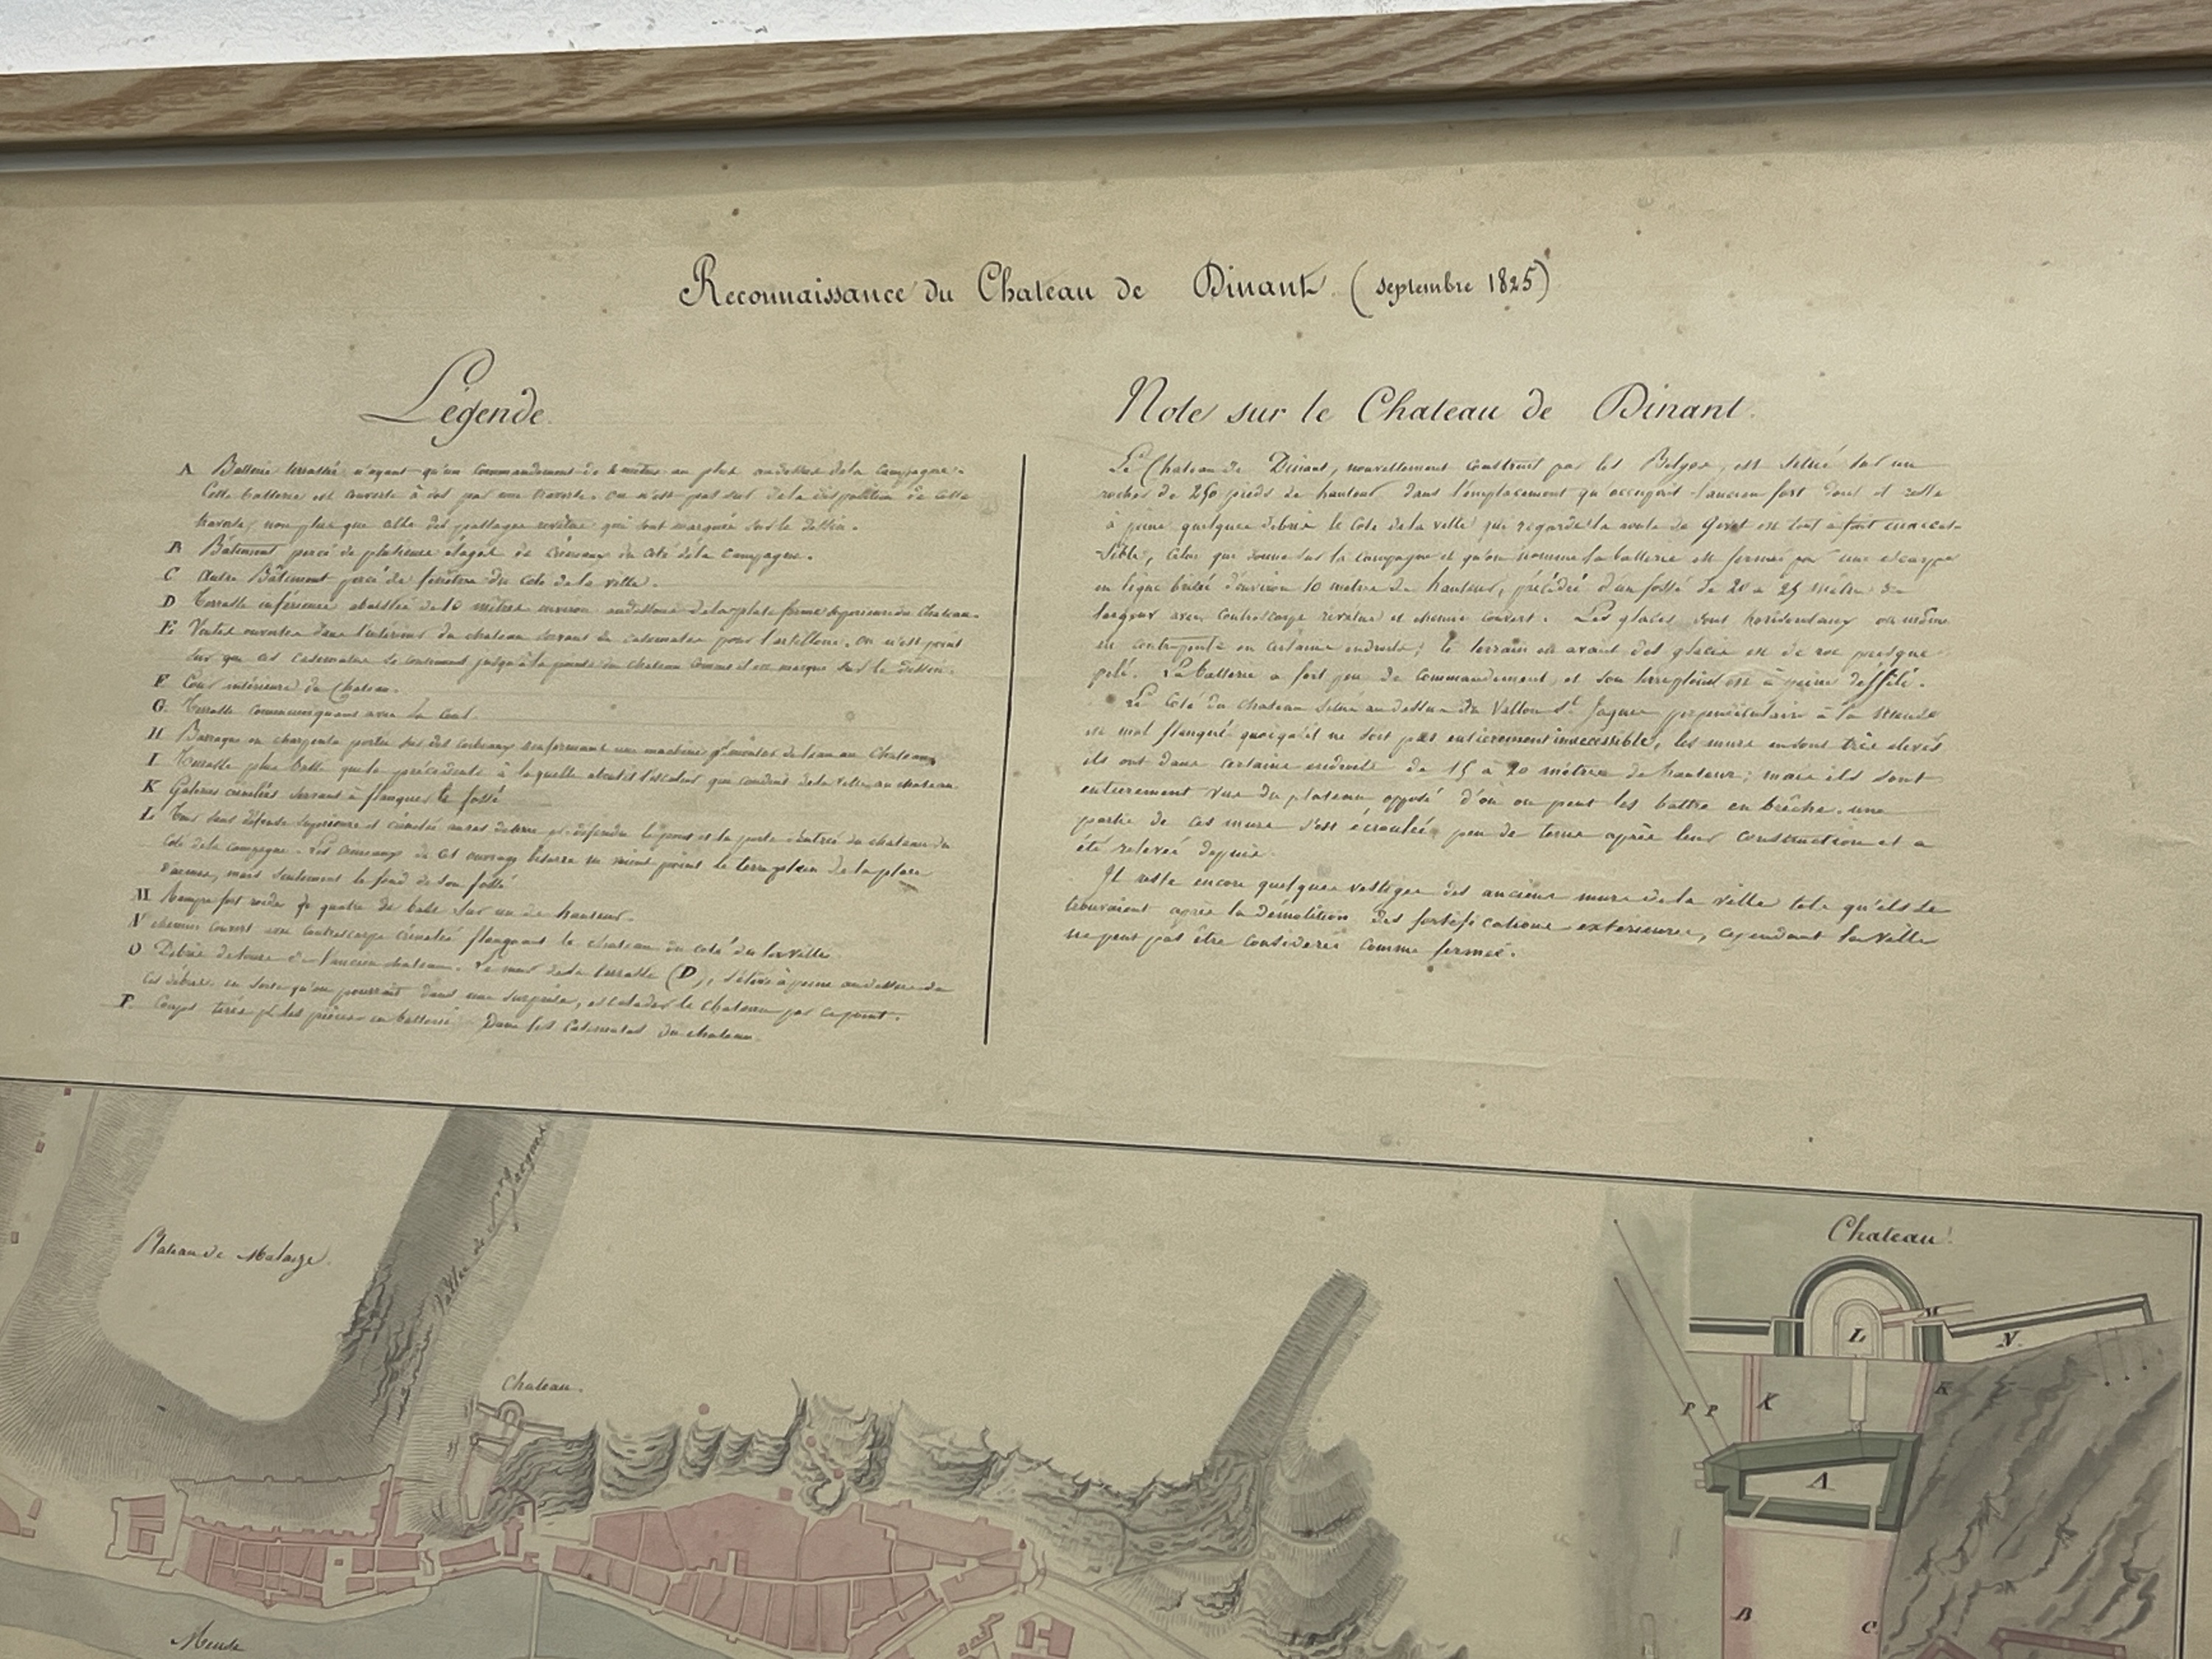 Reconnaissance du Chateau de Dinant. (septembre 1825)
Légende
A Batterie terrassée n'ayant qu'un commandement de 4 mètres au plus audessus de la Campagne.
Cette batterie est couverte à dos par une traverse. on n'est pas sur de la disposition de cette
traverse, non plus que celle des passages qui sont marqués sur le dessin.
B Bâtiment percé de plusieurs étages de Créneaux du coté de la Campagne.
C Autre Bâtiment percé de fenêtres du coté de la ville.
D Terrasse inférieure abaissée de 10 mètres environ audessous de la plate forme Supérieure du Chateau.
E Voutes ouvertes dans l'intérieur du chateau servant de casemates pour l'artillerie. On n'est point
sur que ces casemates se continuent jusqu'à la pointe du chateau comme il est marqué sur le dessin.
F Cour intérieure du Chateau.
G Terrasse communiquant avec la Cour.
H Baraque en charpente portée sur des corbeaux renfermant une machine pr monter de l'eau au Chateau
I Terrasse plus basse que la précédente à laquelle aboutit l'escalier qui conduit de la ville au chateau.
K Galeries crénelées servant à flanquer le fossé
L Tour sans défense Supérieure et crénelée pr défendre le pont et la porte d'entrée du chateau du
coté de la Campagne. Les creneaux de cet ouvrage bizarre ne voient point le terreplein de la place
d'armes, mais seulement le fond de son fossé
M Rampe fort roide de quatre de base sur un de hauteur.
N chemin couvert avec contrescarpe crénelée flanquant le chateau du coté de la ville.
O Débris de tours de l'ancien chateau. Le mur de la terrasse (D), s'élève à peine audessus de
ces débris, en sorte qu'on pourrait dans une surprise, escalader le Chateau par ce point.
P. Coups tirés pr des pièces en batterie Dans les Casemates du chateau.
Note sur le Chateau de Dinant.
Le Chateau de Dinant, nouvellement construit par les Belges, est situé sur un
rocher de 250 pieds de hauteur dans l'emplacement qu'occupait l'ancien fort dont il reste
à peine quelques débris le coté de la ville qui regarde la route de Givet est tout à fait inacces-
sible, celui qui donne sur la campagne et qu'on nomme la batterie est fermé par une escarpe
en ligne brisée d'environ 10 mètres de hauteur, précédée d'un fossé de 20 à 25 mètres de
largeur avec contrescarpe revetue et chemin couvert. Les glacis sont horizontaux ou même
en contrepente en certains endroits; le terrain en avant des glacis est de roc presque
pelé. La batterie a fort peu de commandement, et son terreplein est à peine défilé.
Le Coté du Chateau situé au dessus du Vallon St Jaques perpendiculaire à la Meuse
est mal flanqué quoiqu'il ne soit pas entièrement inaccessible, les murs en sont très élevés
ils ont dans certains endroits de 15 à 20 mètres de hauteur; mais ils sont
entièrement vus du plateau opposé d'où on peut les battre en brèche. une
partie de ces murs s'est écroulée peu de tems après leur construction et a
été relevée depuis.
Il reste encore quelques vestiges des anciens murs de la ville tels qu'ils se
trouvaient après la démolition des fortifications extérieures, cependant la ville
ne peut pas être considérée comme fermée.
Plateau de
Vallée de St Jacques
Chateau.
Meuse
Chateau
M
L
N.
K
K
P P
A
B
C